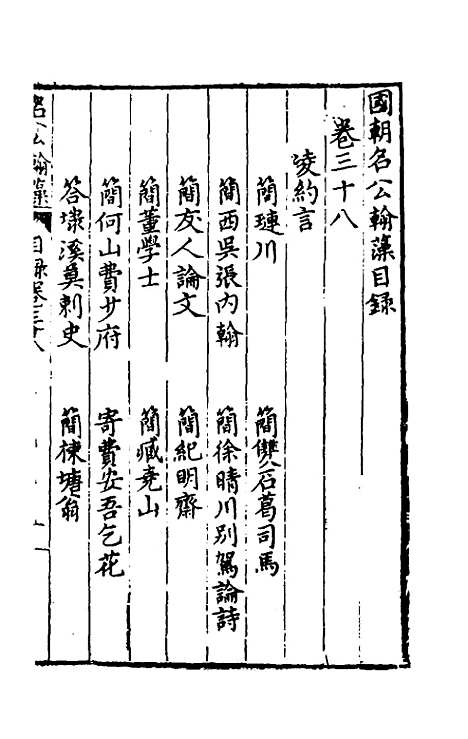 國朝名公翰藻目錄
卷三十八
凌約言
簡璉川 簡雙石葛司馬
簡西吳張內翰 簡徐晴川別駕論詩
簡友人論文 簡紀明齋
簡董學士 簡臧堯山
簡何山費少府 寄費安吾乞花
答壊溪莫刺史 簡棟塘翁
名公翰藻 目錄卷三十八